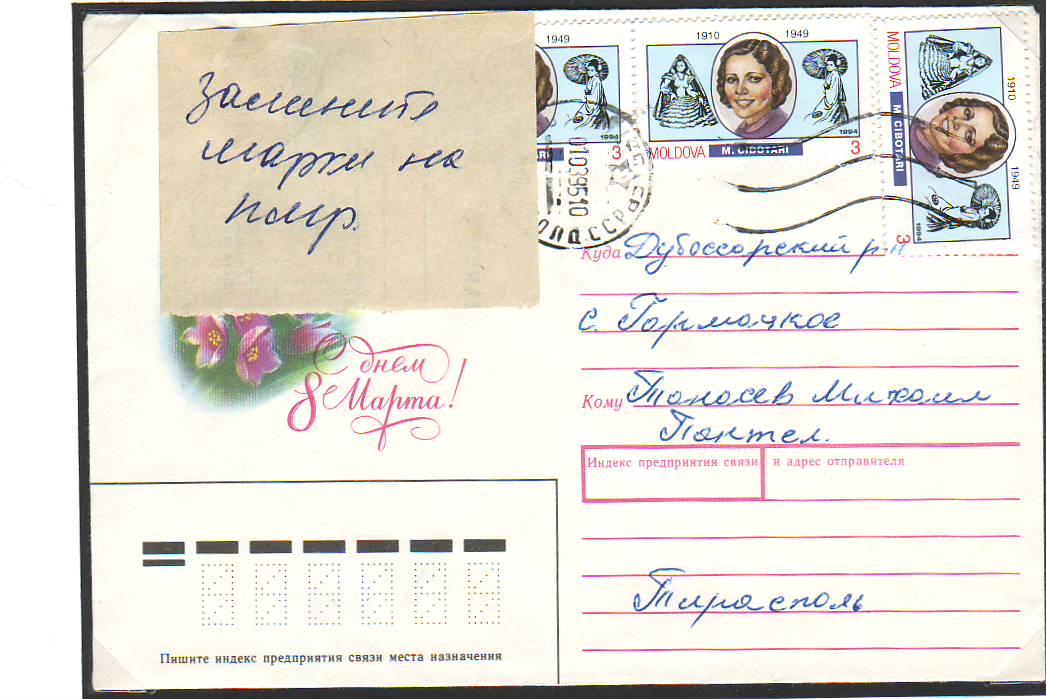 Замените
марки на
пмр.
1949
3
1910 1949
1994
MOLDOVA M. CIBOTARI 3
MOLDOVA M. CIBOTARI
1910 1949
1994
3
01039510
Куда Дубоссарский р-н
с. Гармацкое
Кому Танасев Михаил
Пантел.
Индекс предприятия связи и адрес отправителя
Тирасполь
С днем
8 Марта!
Пишите индекс предприятия связи места назначения